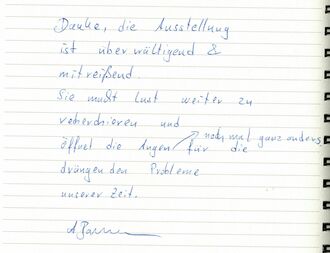 Danke, die Ausstellung
ist überwältigend &
mitreißend.
Sie macht Lust weiter zu
und
noch mal ganz anders
öffnet die Augen für die
drängenden Probleme
unserer Zeit.